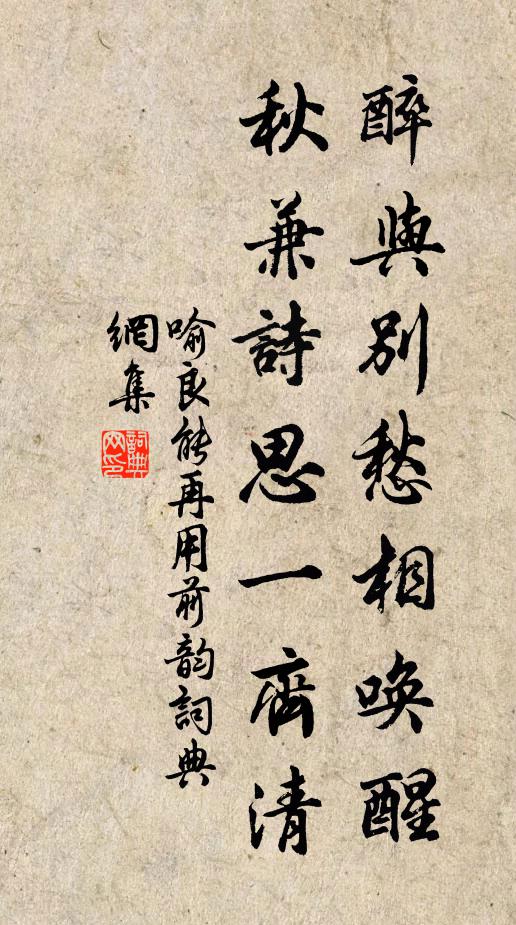 醉與別愁相喚醒
秋兼詩思一齊清
喻良能再用前韵詞典
網集
詞典
网印